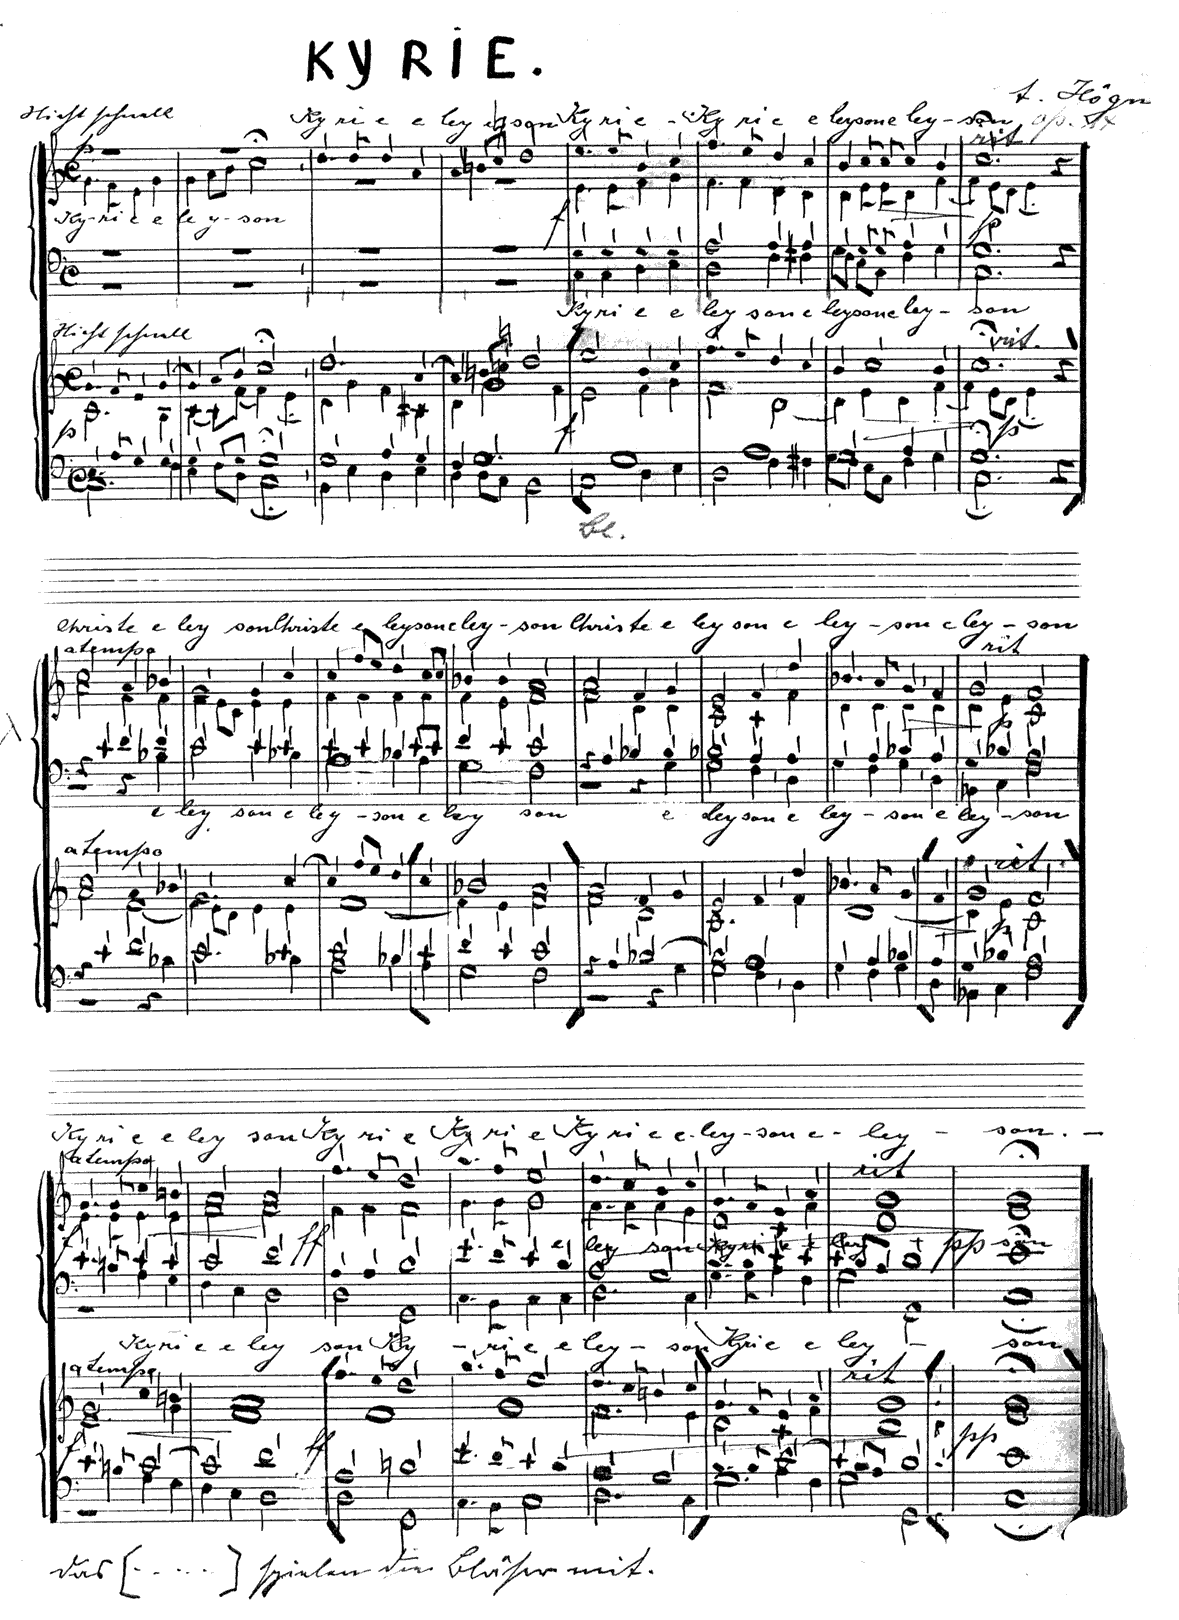 KYRIE.
A. Högn
Nicht schnell Ky ri e e ley e son Ky ri e - Ky ri e e ley son e ley - son, op.
rit
p
Ky-ri e e le y-son
f p
Kyri e e ley son e ley son e ley - son
Nicht schnell rit.
p f p
Bl.
Christe e ley son Christe e leysoneley-son Christe e ley son e ley - son e ley - son
a tempo rit
p
e ley son e ley - son e ley son e Ley son e ley - son e ley - son
a tempo rit
p
Ky ri e e ley son Ky ri e Ky ri e Ky ri e e-ley-son e - ley - son. -
a tempo rit
f ff e ley son Kyri e e ley pp son
Kyri e e ley son Ky - ri e e ley - son Kyrie e ley - son
a tempo rit
f ff pp
das [- ....] spielen die Bläser mit.